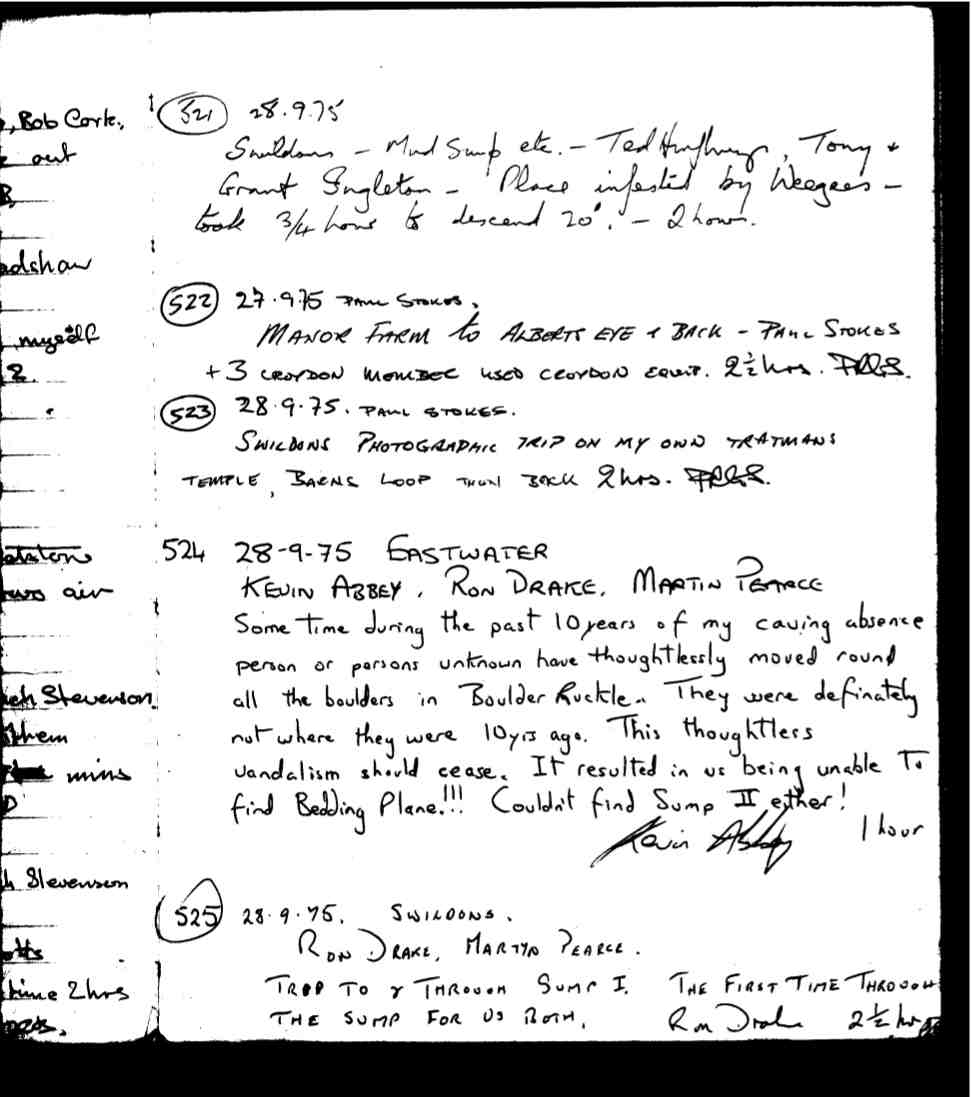 , Bob Cork.,
out
adshaw
myself
2.
air
Stevenson
them
mins
D
h Stevenson
time 2hrs
521 28.9.75
Swildons – Mud Sump etc. – Ted Humphreys, Tony +
Grant Singleton – Place infested by Weegees –
took 3/4 hour to descend 20'. – 2 hours.
522 27.9.75 PAUL STOKES.
MANOR FARM to ALBERTS EYE + BACK – PAUL STOKES
+ 3 CROYDON MEMBEC USED CROYDON EQUIP. 2½hrs.
523 28.9.75. PAUL STOKES.
SWILDONS PHOTOGRAPHIC TRIP ON MY OWN TRATMANS
TEMPLE, BARNS LOOP THEN BACK 2hrs.
524 28-9-75 EASTWATER
KEVIN ABBEY, RON DRAKE, MARTIN PEARCE
Some Time during the past 10 years of my caving absence
person or persons unknown have thoughtlessly moved round
all the boulders in Boulder Ruckle. They were definately
not where they were 10yrs ago. This thoughtless
vandalism should cease. It resulted in us being unable To
find Bedding Plane!!! Couldn't find Sump II either!
Kevin Abbey 1 hour
525 28.9.75. SWILDONS.
RON DRAKE, MARTYN PEARCE.
TRIP TO & THROUGH SUMP I. THE FIRST TIME THROUGH
THE SUMP FOR US BOTH. Ron Drake 2½ hrs